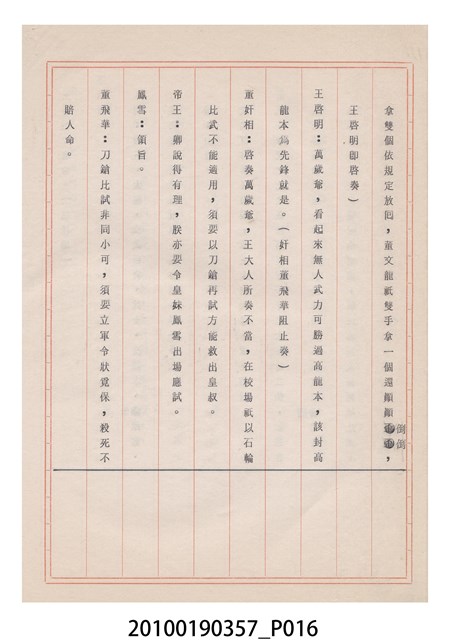 拿雙個依規定放囘，董文龍祇雙手拿一個還顚顚倒倒，
王啓明卽啓奏）
王啓明：萬歲爺，看起來無人武力可勝過高龍本，該封高
龍本爲先鋒就是。（奸相董飛華阻止奏）
董奸相：啓奏萬歲爺，王大人所奏不當，在校場祇以石輪
比武不能適用，須要以刀鎗再試方能救出皇叔。
帝王：卿說得有理，朕亦要令皇妹鳳雲出場應試。
鳳雲：領旨。
董飛華：刀鎗比試非同小可，須要立軍令狀覔保，殺死不
賠人命。
20100190357_P016